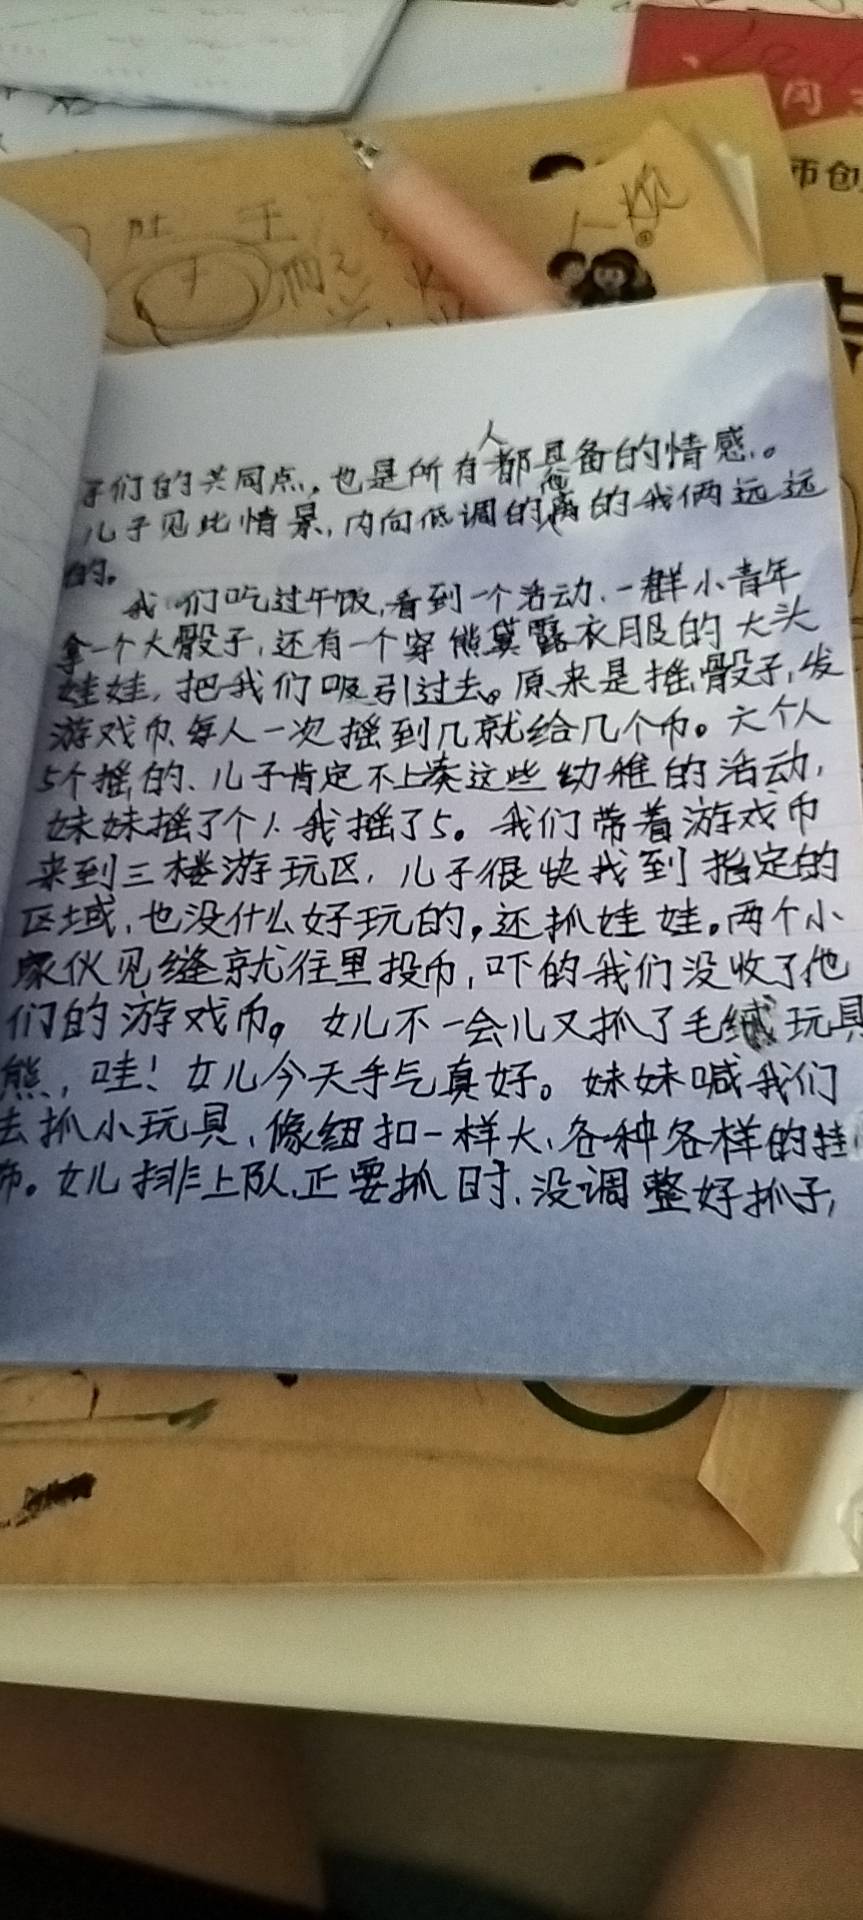 子们的共同点,也是所有人都具备的情感。
儿子见此情景,内向低调的他离的我俩远远
的。
我们吃过午饭,看到一个活动、一群小青年
拿一个大骰子,还有一个穿熊 露衣服的大头
娃娃,把我们吸引过去。原来是摇骰子,发
游戏币、每人一次摇到几就给几个币。六个人
5个摇的、儿子肯定不上凑这些幼稚的活动,
妹妹摇了个1、我摇了5。我们带着游戏币
来到三楼游玩区,儿子很快找到指定的
区域,也没什么好玩的,还抓娃娃。两个小
家伙见缝就往里投币,吓的我们没收了他
们的游戏币。女儿不一会儿又抓了毛绒玩具
熊,哇!女儿今天手气真好。妹妹喊我们
去抓小玩具、像纽扣一样大、各种各样的挂
饰。女儿排上队、正要抓时、没调整好抓子,
师创